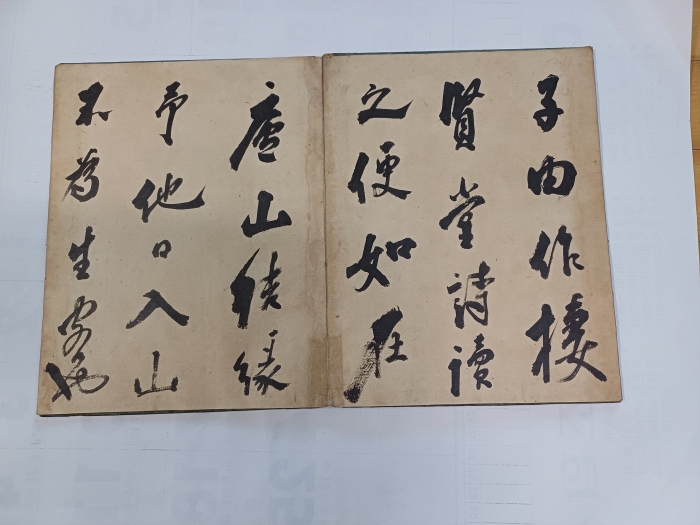 子由作棲
賢堂讀
之便如在
廬山結緣
予他日入山
不為生客也